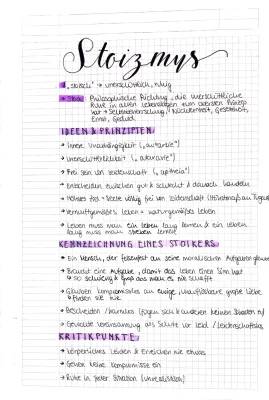 Stoizmus
"stoisch" → unerschütterlich, ruhig
Stoa: Philosophische Richtung, die unerschütterliche
Ruhe in allen Lebenslagen zum obersten Prinzip
hat → Selbstbeherrschung, Nüchternheit, Gelassenheit,
Ernst, Geduld
IDEEN & PRINZIPIEN
→ Innere Unabhängigkeit („autarkie")
→ Unerschütterlichkeit („ataraxie")
→ Frei sein von Leidenschaft („apatheia")
→ Entscheiden zwischen gut & schlecht & danach handeln
→ Höchstes Ziel → Seele völlig frei von Leidenschaft
→ Vernunftgemäßes Leben = naturgemäßes Leben
→ Leben muss man ein Leben lang lernen & ein Leben
lang muss man sterben lernen
KENNZEICHNUNG EINES STOIKERS
→ Ein Mensch, der fest an seine moralischen Aufgaben
→ Braucht eine Aufgabe, damit das Leben einen Sinn hat
→ so schwierig & groß das man es nie schafft
→ Glauben kompromisslos an ewige, unauflösbare große Liebe
→ finden sie nie
→ Bescheiden / harmlos (fügen sich & anderen keinen Schaden zu)
→ Gewollte Vereinsamung als Schutz vor Leid / Leidenschaft
KRITIKPUNKTE:
→ Körperliches Leiden & Erreichen nie etwas
→ Gehen keine Kompromisse ein
→ Ruhe in jeder Situation (unrealistisch)